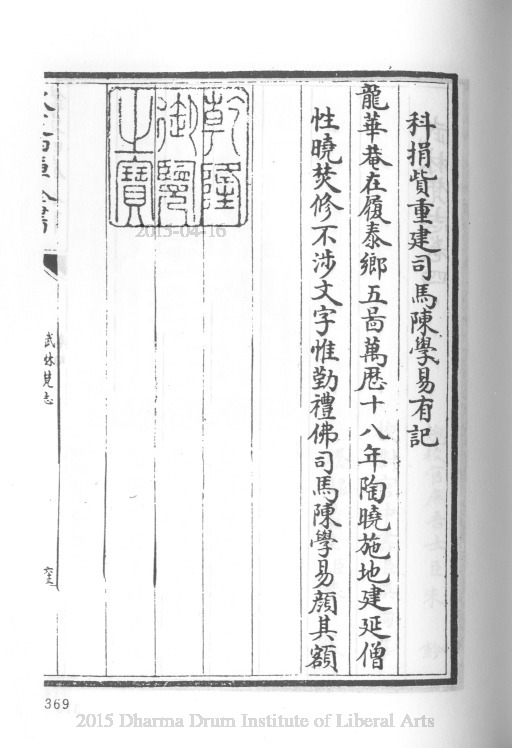 科捐貲重建司馬陳學易有記
龍華菴在履泰鄉五啚萬厯十八年陶曉施地建延僧
性曉焚修不涉文字惟勤禮佛司馬陳學易顔其額
乾隆
御覽
之寶
2015-04-16
武林梵志
369
2015 Dharma Drum Institute of Liberal Arts